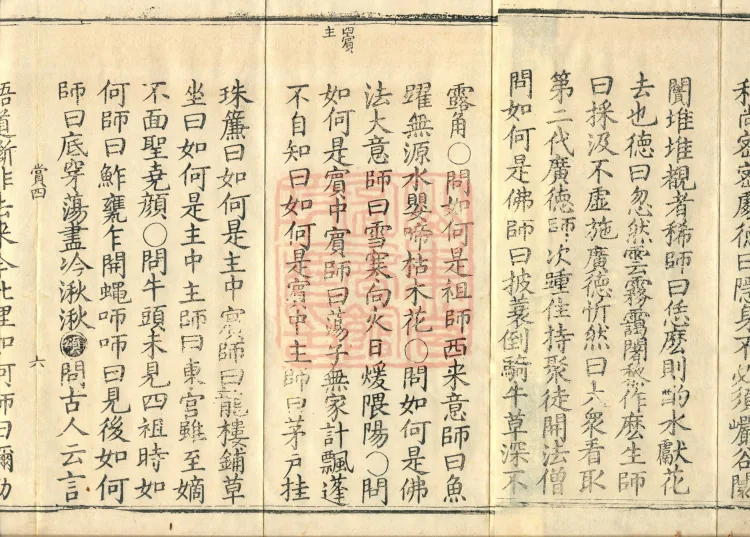 和尚密密處德曰隱身不必須巖谷闤
闠堆堆覩者稀師曰恁麽則酌水獻花
去也德曰忽然雲霧靄闍棃作麽生師
曰採汲不虛施廣德忻然曰大衆看取
第二代廣德師次踵住持聚徒開法僧
問如何是佛師曰披蓑倒騎牛草深不
四賓主
露角〇問如何是祖師西来意師曰魚
躍無源水嬰啼枯木花〇問如何是佛
法大意師曰雪寒向火日煖隈陽〇問
如何是賓中賓師曰蕩子無家計飄蓬
不自知曰如何是賓中主師曰茅戸挂
珠簾曰如何是主中賓師曰龍樓鋪草
坐曰如何是主中主師曰東宮雖至嫡
不面聖堯顔〇問牛頭未見四祖時如
何師曰鮓甕乍開蠅咂咂曰見後如何
師曰底穿蕩盡冷湫湫問古人云言
四 六
語道斷非去来今此里如何師曰彌勒